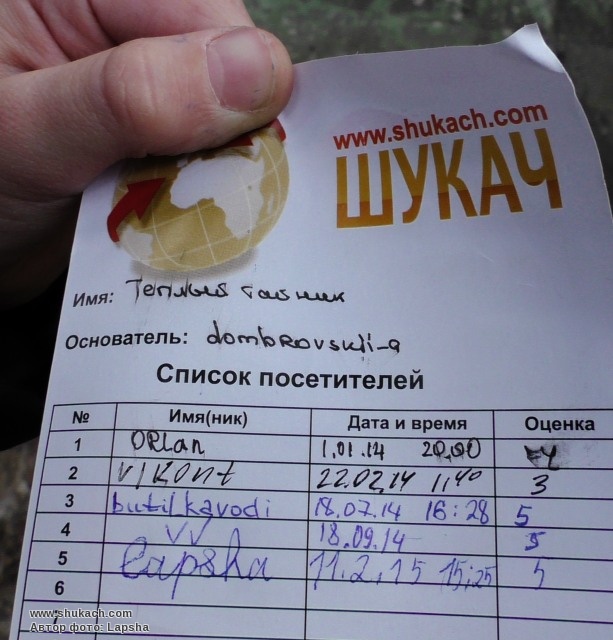 www.shukach.com
ШУКАЧ
Имя: Теплый тайник
Основатель: dombrovskii-a
Список посетителей
№ Имя(ник) Дата и время Оценка
1 ORlan 1.01.14 20.00 4
2 VIKONT 22.02.14 11:40 3
3 butilkavodi 18.07.14 16:28 5
4 VV 18.09.14 5
5 Lapsha 11.2.15 15:25 5
6
7
www.shukach.com
Автор фото: Lapsha